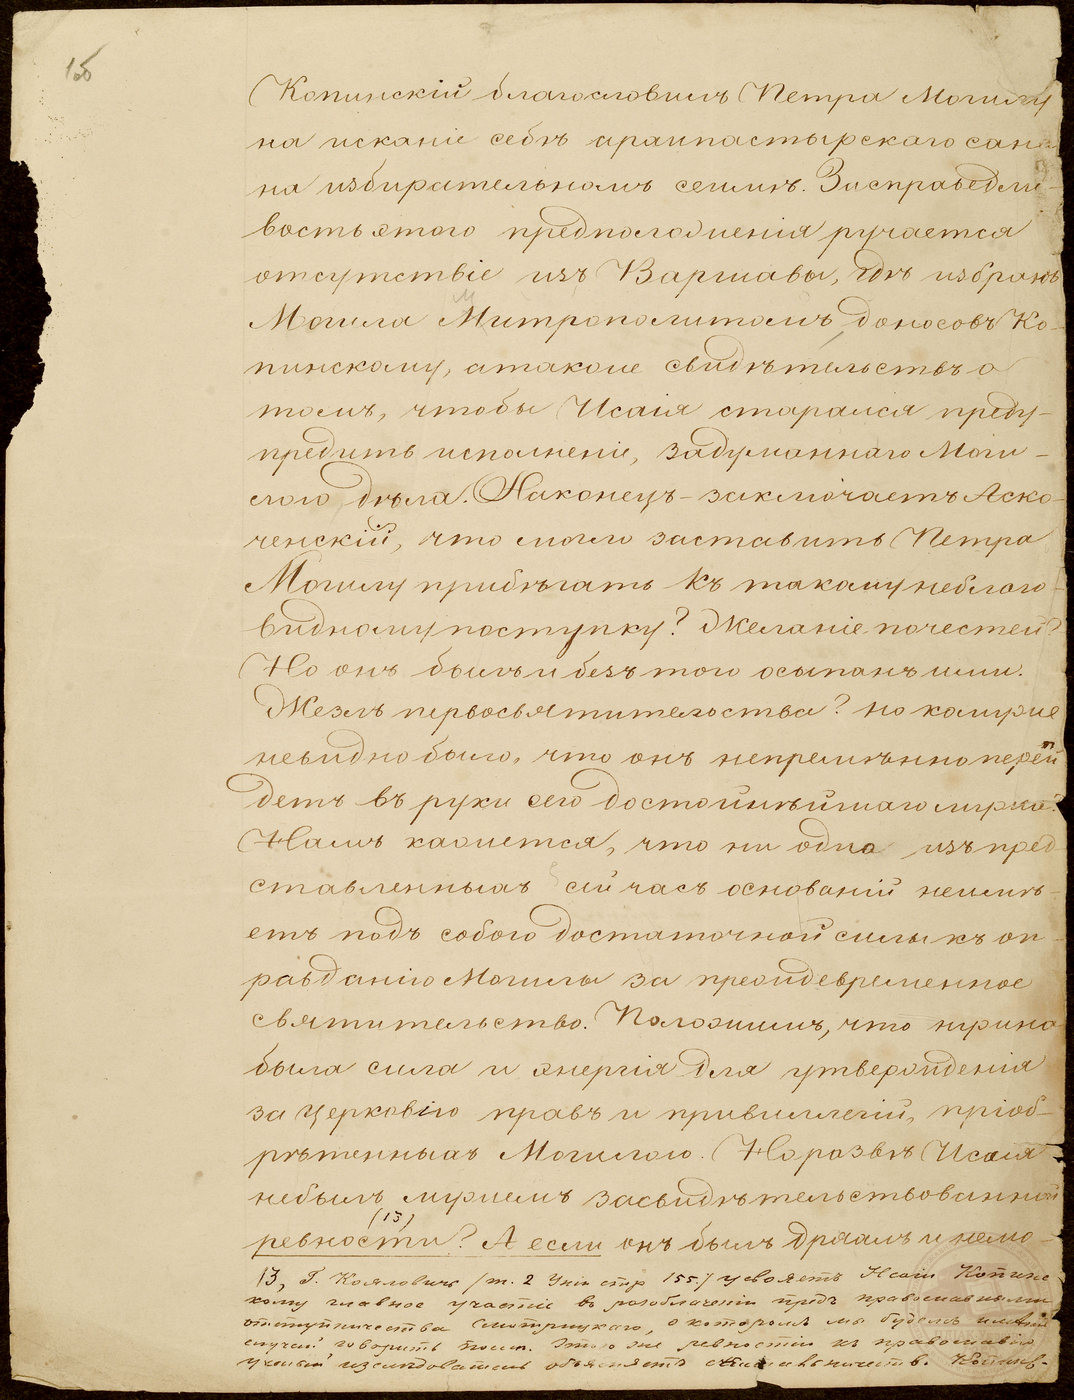 15
Копинскій благословилъ Петра Могилу
на исканіе себѣ архипастырскаго сана
на избирательномъ сеймѣ. За справедли-
вость этого предположенія ручается
отсутствіе изъ Варшавы, гдѣ избранъ
Могила Митрополитомъ, доносовъ Ко-
пинскому, а также свидѣтельствъ о
томъ, чтобы Исаія старался преду-
предить исполненіе, задуманнаго Моги-
лою дѣла. Наконецъ - заключаетъ Аско-
ченскій, что могло заставить Петра
Могилу прибѣгать къ такому неблаго-
видному поступку? Желаніе почестей?
Но онъ былъ и безъ того осыпанъ ими.
Жезлъ первосвятительства? но кому же
невидно было, что онъ непремѣнно перей
детъ въ руки сего достойнѣйшаго мужа?
Намъ кажется, что ни одно изъ пред-
ставленныхъ сейчасъ основаній неимѣ-
етъ подъ собою достаточной силы къ оп-
равданію Могилы за преждевременное
святительство. Положимъ, что нужна
была сила и энергія для утвержденія
за Церковію правъ и привиллегій, пріоб-
рѣтенныхъ Могилою. Но развѣ Исаія
небылъ мужемъ засвидѣтельствованной
ревности? (13) А если онъ былъ дряхлъ и немо-
13, Г. Кояловичъ /т. 2 Уніи стр 155./ усвояетъ Исаіи Копинс
кому главное участіе въ разоблаченіи предъ православными
отступничества Смотрицкаго, о которомъ мы будемъ имѣть
случай говорить послѣ. Этою же ревностію къ православію
ученый изслѣдователь объясняетъ Копинс-